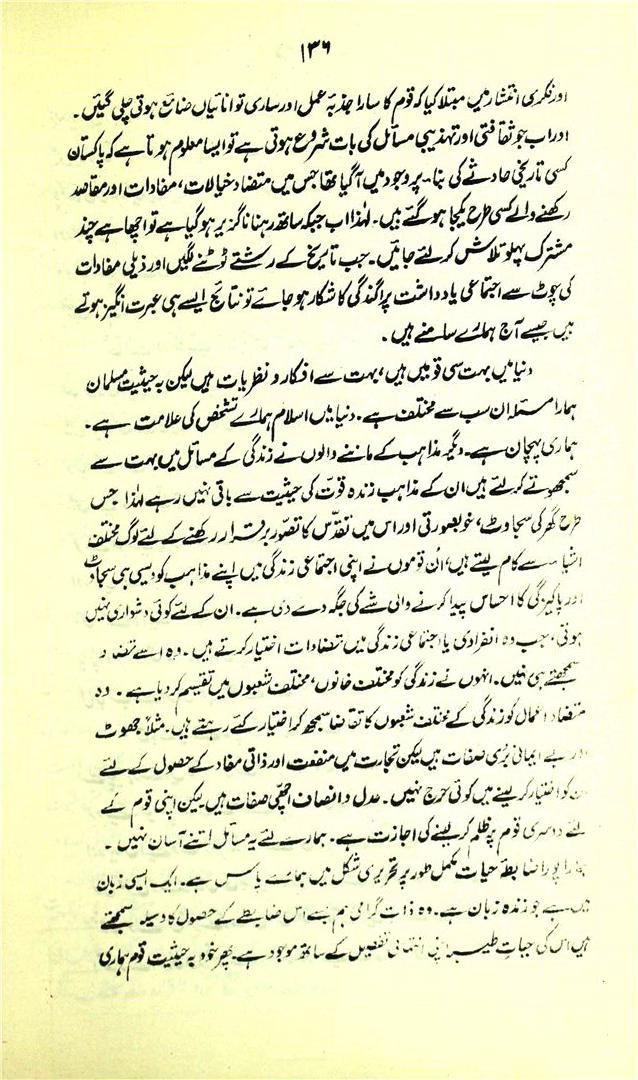 ۱۳۶
اور فکری انتشار میں مبتلا کیا کہ قوم کا سارا جذبۂ عمل اور ساری توانائیاں ضائع ہوتی چلی گئیں۔
اور اب جو ثقافتی اور تہذیبی مسائل کی بات شروع ہوتی ہے تو ایسا معلوم ہوتا ہے کہ پاکستان
کسی تاریخی حادثے کی بناء پر وجود میں آگیا تھا جس میں متضاد خیالات، مفادات اور مقاصد
رکھنے والے کسی طرح یکجا ہوگئے ہیں۔ لہٰذا اب جبکہ ساتھ رہنا ناگزیر ہو گیا ہے تو اچھا ہے چند
مشترک پہلو تلاش کر لئے جائیں۔ جب تاریخ کے رشتے ٹوٹنے لگیں اور ذیلی مفادات
کی چوٹ سے اجتماعی یادداشت پراگندگی کا شکار ہو جائے تو نتائج ایسے ہی عبرت انگیز ہوتے
ہیں جیسے آج ہمارے سامنے ہیں۔
دنیا میں بہت سی قومیں ہیں، بہت سے افکار و نظریات ہیں لیکن بہ حیثیت مسلمان
ہمارا مسئلہ ان سب سے مختلف ہے۔ دنیا میں اسلام ہمارے تشخص کی علامت ہے۔
ہماری پہچان ہے۔ دیگر مذاہب کے ماننے والوں نے زندگی کے مسائل میں بہت سے
سمجھوتے کر لئے ہیں ان کے مذاہب زندہ قوت کی حیثیت سے باقی نہیں رہے لہٰذا جس
طرح گھر کی سجاوٹ، خوبصورتی اور اس میں تقدس کا تصور برقرار رکھنے کے لئے لوگ مختلف
اشیاء سے کام لیتے ہیں، اُن قوموں نے اپنی اجتماعی زندگی میں اپنے مذاہب کو ویسی ہی سجاوٹ
اور پاکیزگی کا احساس پیدا کرنے والی شے کی جگہ دے دی ہے۔ ان کے لئے کوئی دشواری نہیں
ہوتی، جب وہ انفرادی یا اجتماعی زندگی میں تضادات اختیار کرتے ہیں۔ وہ اسے تضاد
سمجھتے ہی نہیں۔ انہوں نے زندگی کو مختلف خانوں، مختلف شعبوں میں تقسیم کر دیا ہے۔ وہ
متضاد اعمال کو زندگی کے مختلف شعبوں کا تقاضا سمجھ کر اختیار کئے رہتے ہیں۔ مثلاً جھوٹ
اور بے ایمانی بُری صفات ہیں لیکن تجارت میں منفعت اور ذاتی مفاد کے حصول کے لئے
ان کو اختیار کر لینے میں کوئی حرج نہیں۔ عدل و انصاف اچھی صفات ہیں لیکن اپنی قوم کے
لئے دوسری قوم پر ظلم کر لینے کی اجازت ہے۔ ہمارے لئے یہ مسائل اتنے آسان نہیں۔
ہمارا پورا ضابطۂ حیات مکمل طور پر تحریری شکل میں ہمارے پاس ہے۔ ایک ایسی زبان
میں ہے جو زندہ زبان ہے۔ وہ ذات گرامی ہم جسے اس ضابطے کے حصول کا وسیلہ سمجھتے
ہیں اس کی حیات طیبہ اپنی انتہائی تفصیل کے ساتھ موجود ہے۔ پھر خود بہ حیثیت قوم ہماری